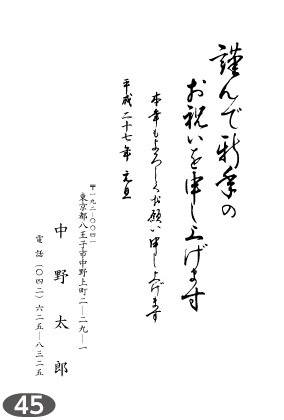 謹んで新年の
お祝いを申し上げます
本年もよろしくお願い申し上げます
平成二十七年 元旦
〒一九二-〇〇四一
東京都八王子市中野上町二-二九-一
中野太郎
電話(〇四二)六二五-八三二五
45